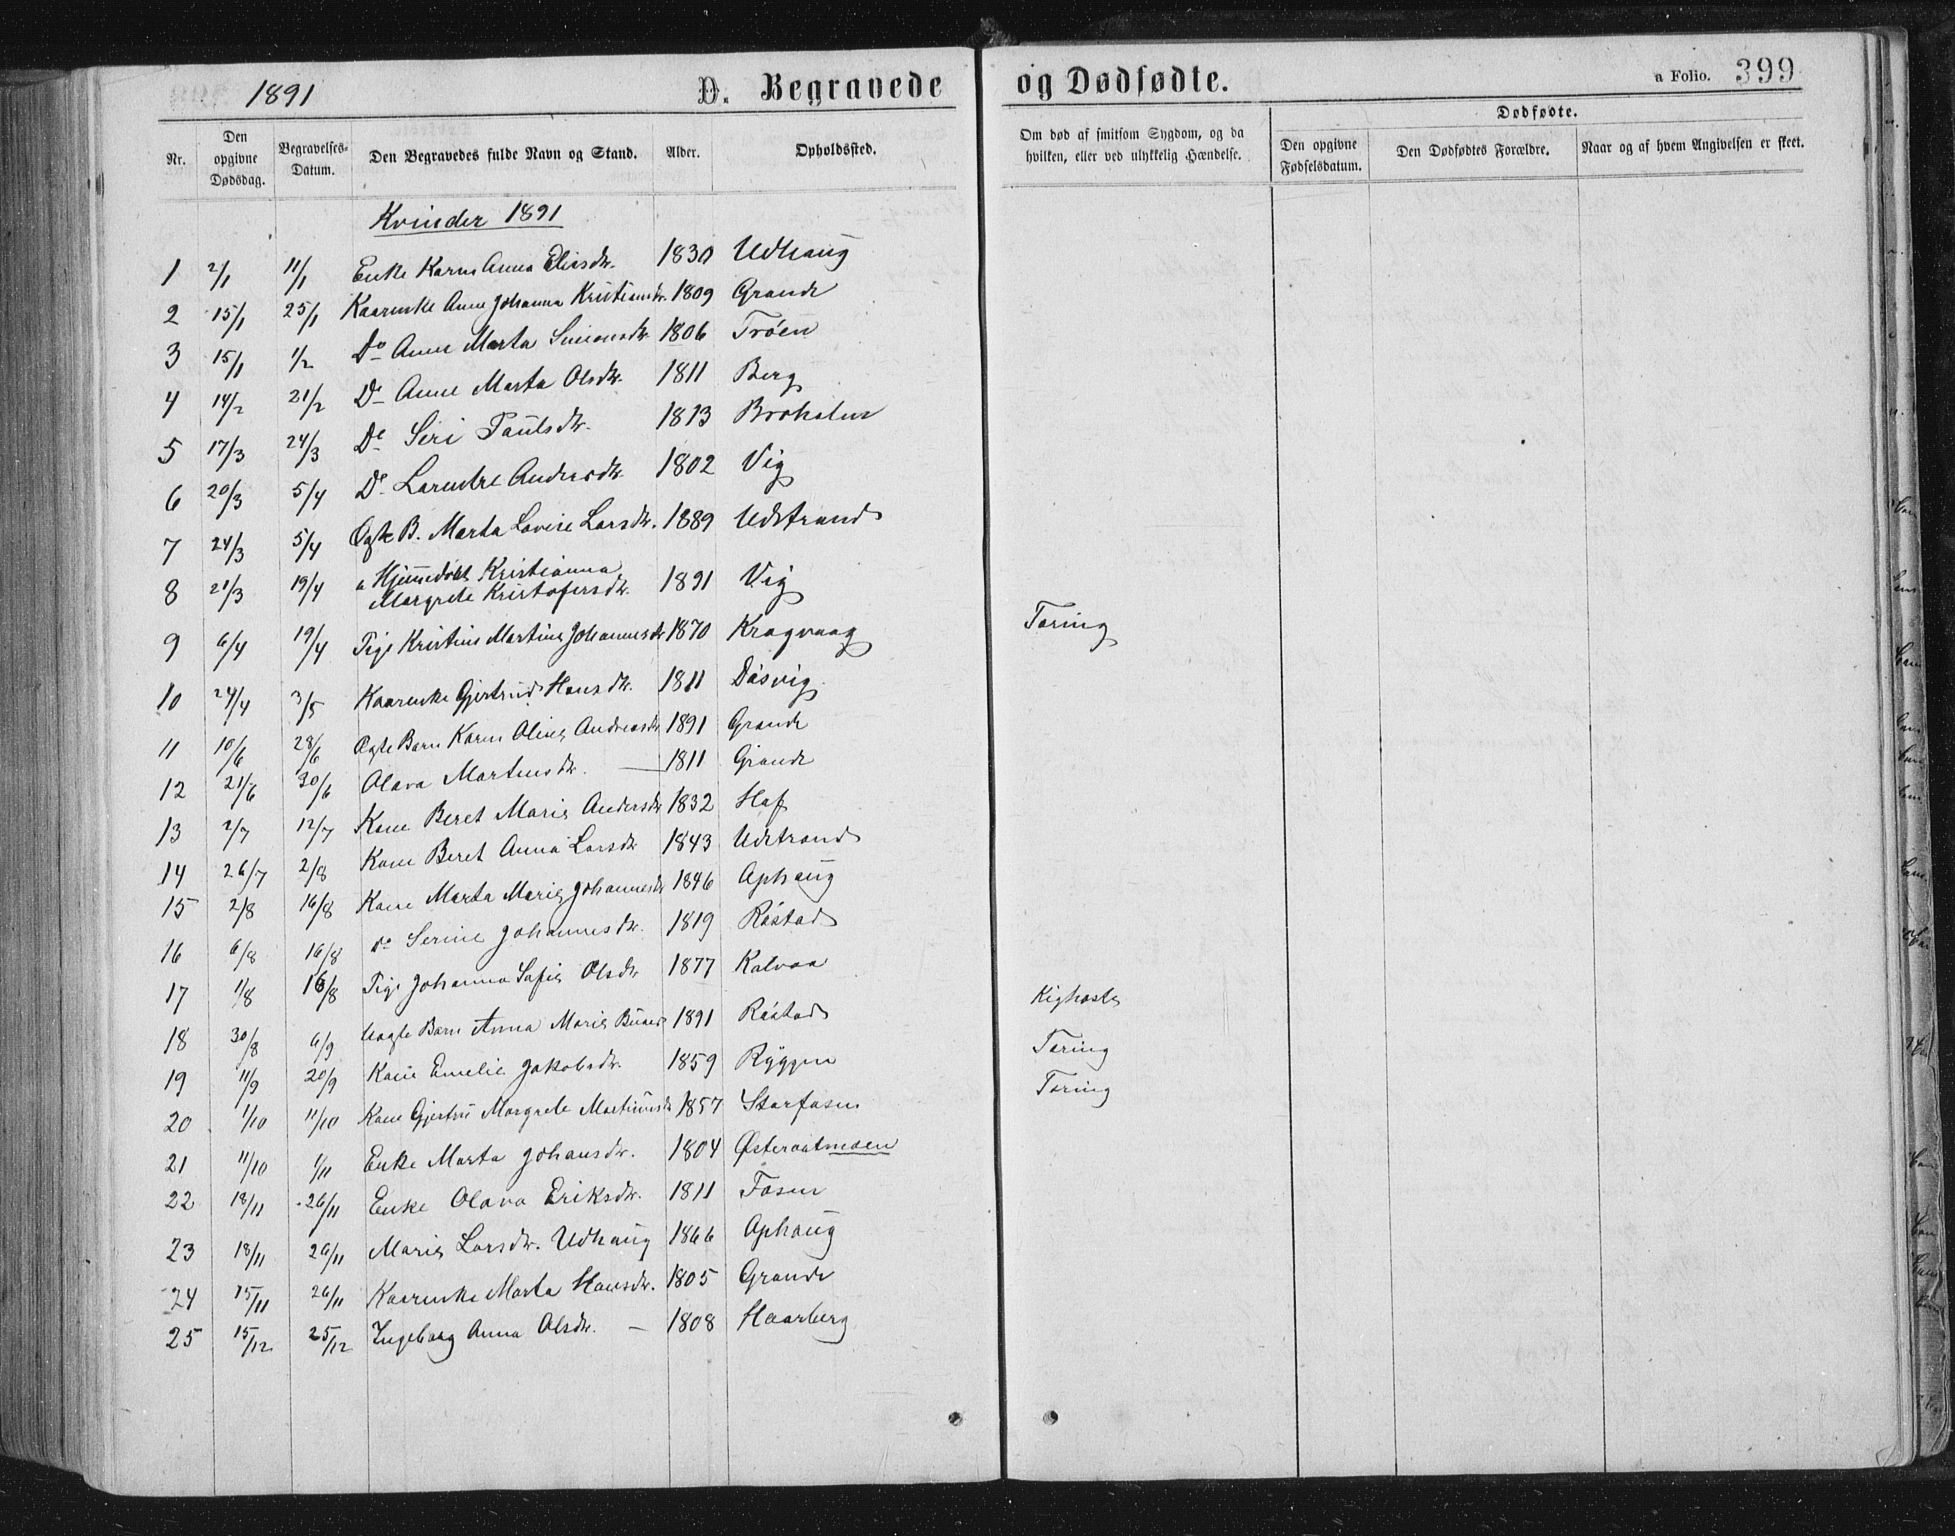 1891 D. Begravede og Dødfødte. a Folio. 399
Nr. Den opgivne Dødsdag. Begravelses-Datum. Den Begravedes fulde Navn og Stand. Alder. Opholdssted. Om død af smitsom Sygdom, og da hvilken, eller ved ulykkelig Hændelse. Dødfødte. Den opgivne Fødselsdatum. Den Dødfødtes Forældre. Naar og af hvem Angivelsen er skeet.
Kvinder 1891
1 2/1 11/1 Enke Karen Anna Eliasdtr. 1830 Udhaug
2 15/1 25/1 Kaarenke Anne Johanna Kristiansdtr. 1809 Grande
3 15/1 1/2 Do Anne Marta Simonsdtr 1806 Trøen
4 14/2 21/2 Do Anne Marta Olsdtr. 1811 Berg
5 17/3 24/3 Do Seri Paulsdtr. 1813 Broholen
6 20/3 5/4 Do Larentse Andersdtr. 1802 Vig
7 24/3 5/4 Ægte B. Marta Lovise Larsdtr. 1889 Udstrand
8 21/3 19/4 " Hjemmedøbt Kristianna
Margrete Kristofersdtr. 1891 Vig
9 6/4 19/4 Pige Kristine Martine Johannesdtr 1870 Kragvaag Tæring
10 24/4 3/5 Kaarenke Gjertrud Hansdtr. 1811 Døsvig
11 10/6 28/6 Ægte Barn Karen Oline Andreasdtr 1891 Grande
12 21/6 30/6 Olava Martensdtr. — 1811 Grande
13 2/7 12/7 Kone Beret Marie Andersdtr 1832 Hof
14 26/7 2/8 Kone Beret Anna Larsdtr 1843 Udstrand
15 2/8 16/8 Kone Marta Marie Johannesdtr 1846 Aphaug
16 6/8 16/8 do Serine Johannesdtr. 1819 Røstad
17 1/8 16/8 Pige Johanna Sofie Olsdtr 1877 Kalvaa
18 30/8 6/9 Uægte Barn Anna Marie 1891 Røstad Kighoste
19 11/9 20/9 Kone Emelie Jakobsdtr. 1859 Ryggen Tæring
20 1/10 11/10 Kone Gjertru Margrete Martinusdtr 1857 Storfosen Tæring
21 11/10 1/11 Enke Marta Johansdtr. 1804 Østeraatmoen
22 18/11 26/11 Enke Olava Eriksdtr. 1811 Fosen
23 18/11 26/11 Marie Larsdtr. Udhaug 1866 Aphaug
24 15/11 26/11 Kaarenke Marta Hansdtr. 1805 Grande
25 15/12 25/12 Ingeborg Anna Olsdtr. — 1808 Haarberg